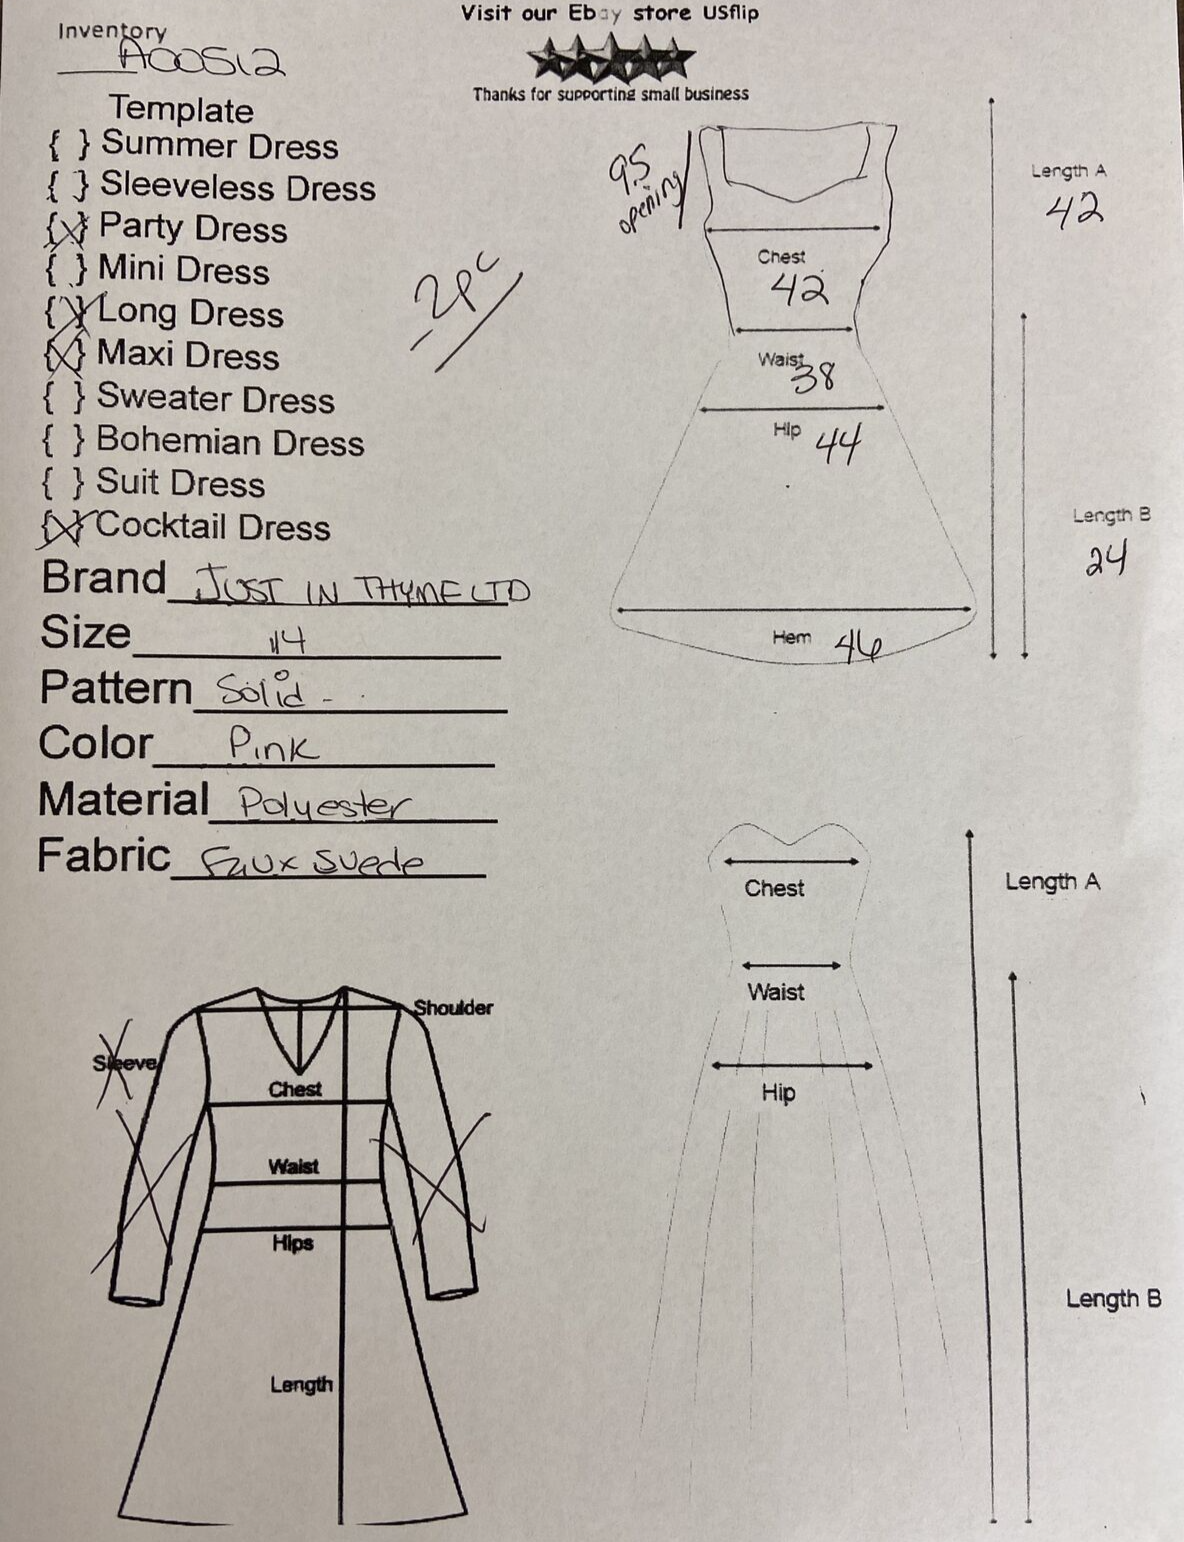 Visit our Ebay store USflip
Thanks for supporting small business
Inventory
A00512
Template
{ } Summer Dress
{ } Sleeveless Dress
{X} Party Dress
{ } Mini Dress
{X} Long Dress
{X} Maxi Dress
{ } Sweater Dress
{ } Bohemian Dress
{ } Suit Dress
{X} Cocktail Dress
2pc
Brand JUST IN THYME LTD
Size 14
Pattern Solid -
Color Pink
Material Polyester
Fabric Faux Suede
9.5
opening
Chest
42
Waist
38
Hip 44
Hem 46
Length A
42
Length B
24
Chest
Waist
Hip
Length A
Length B
Shoulder
Sleeve
Chest
Waist
Hips
Length